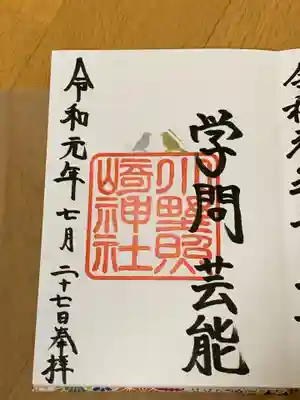 学問芸能
小野照
崎神社
令和元年七月二十七日奉拝